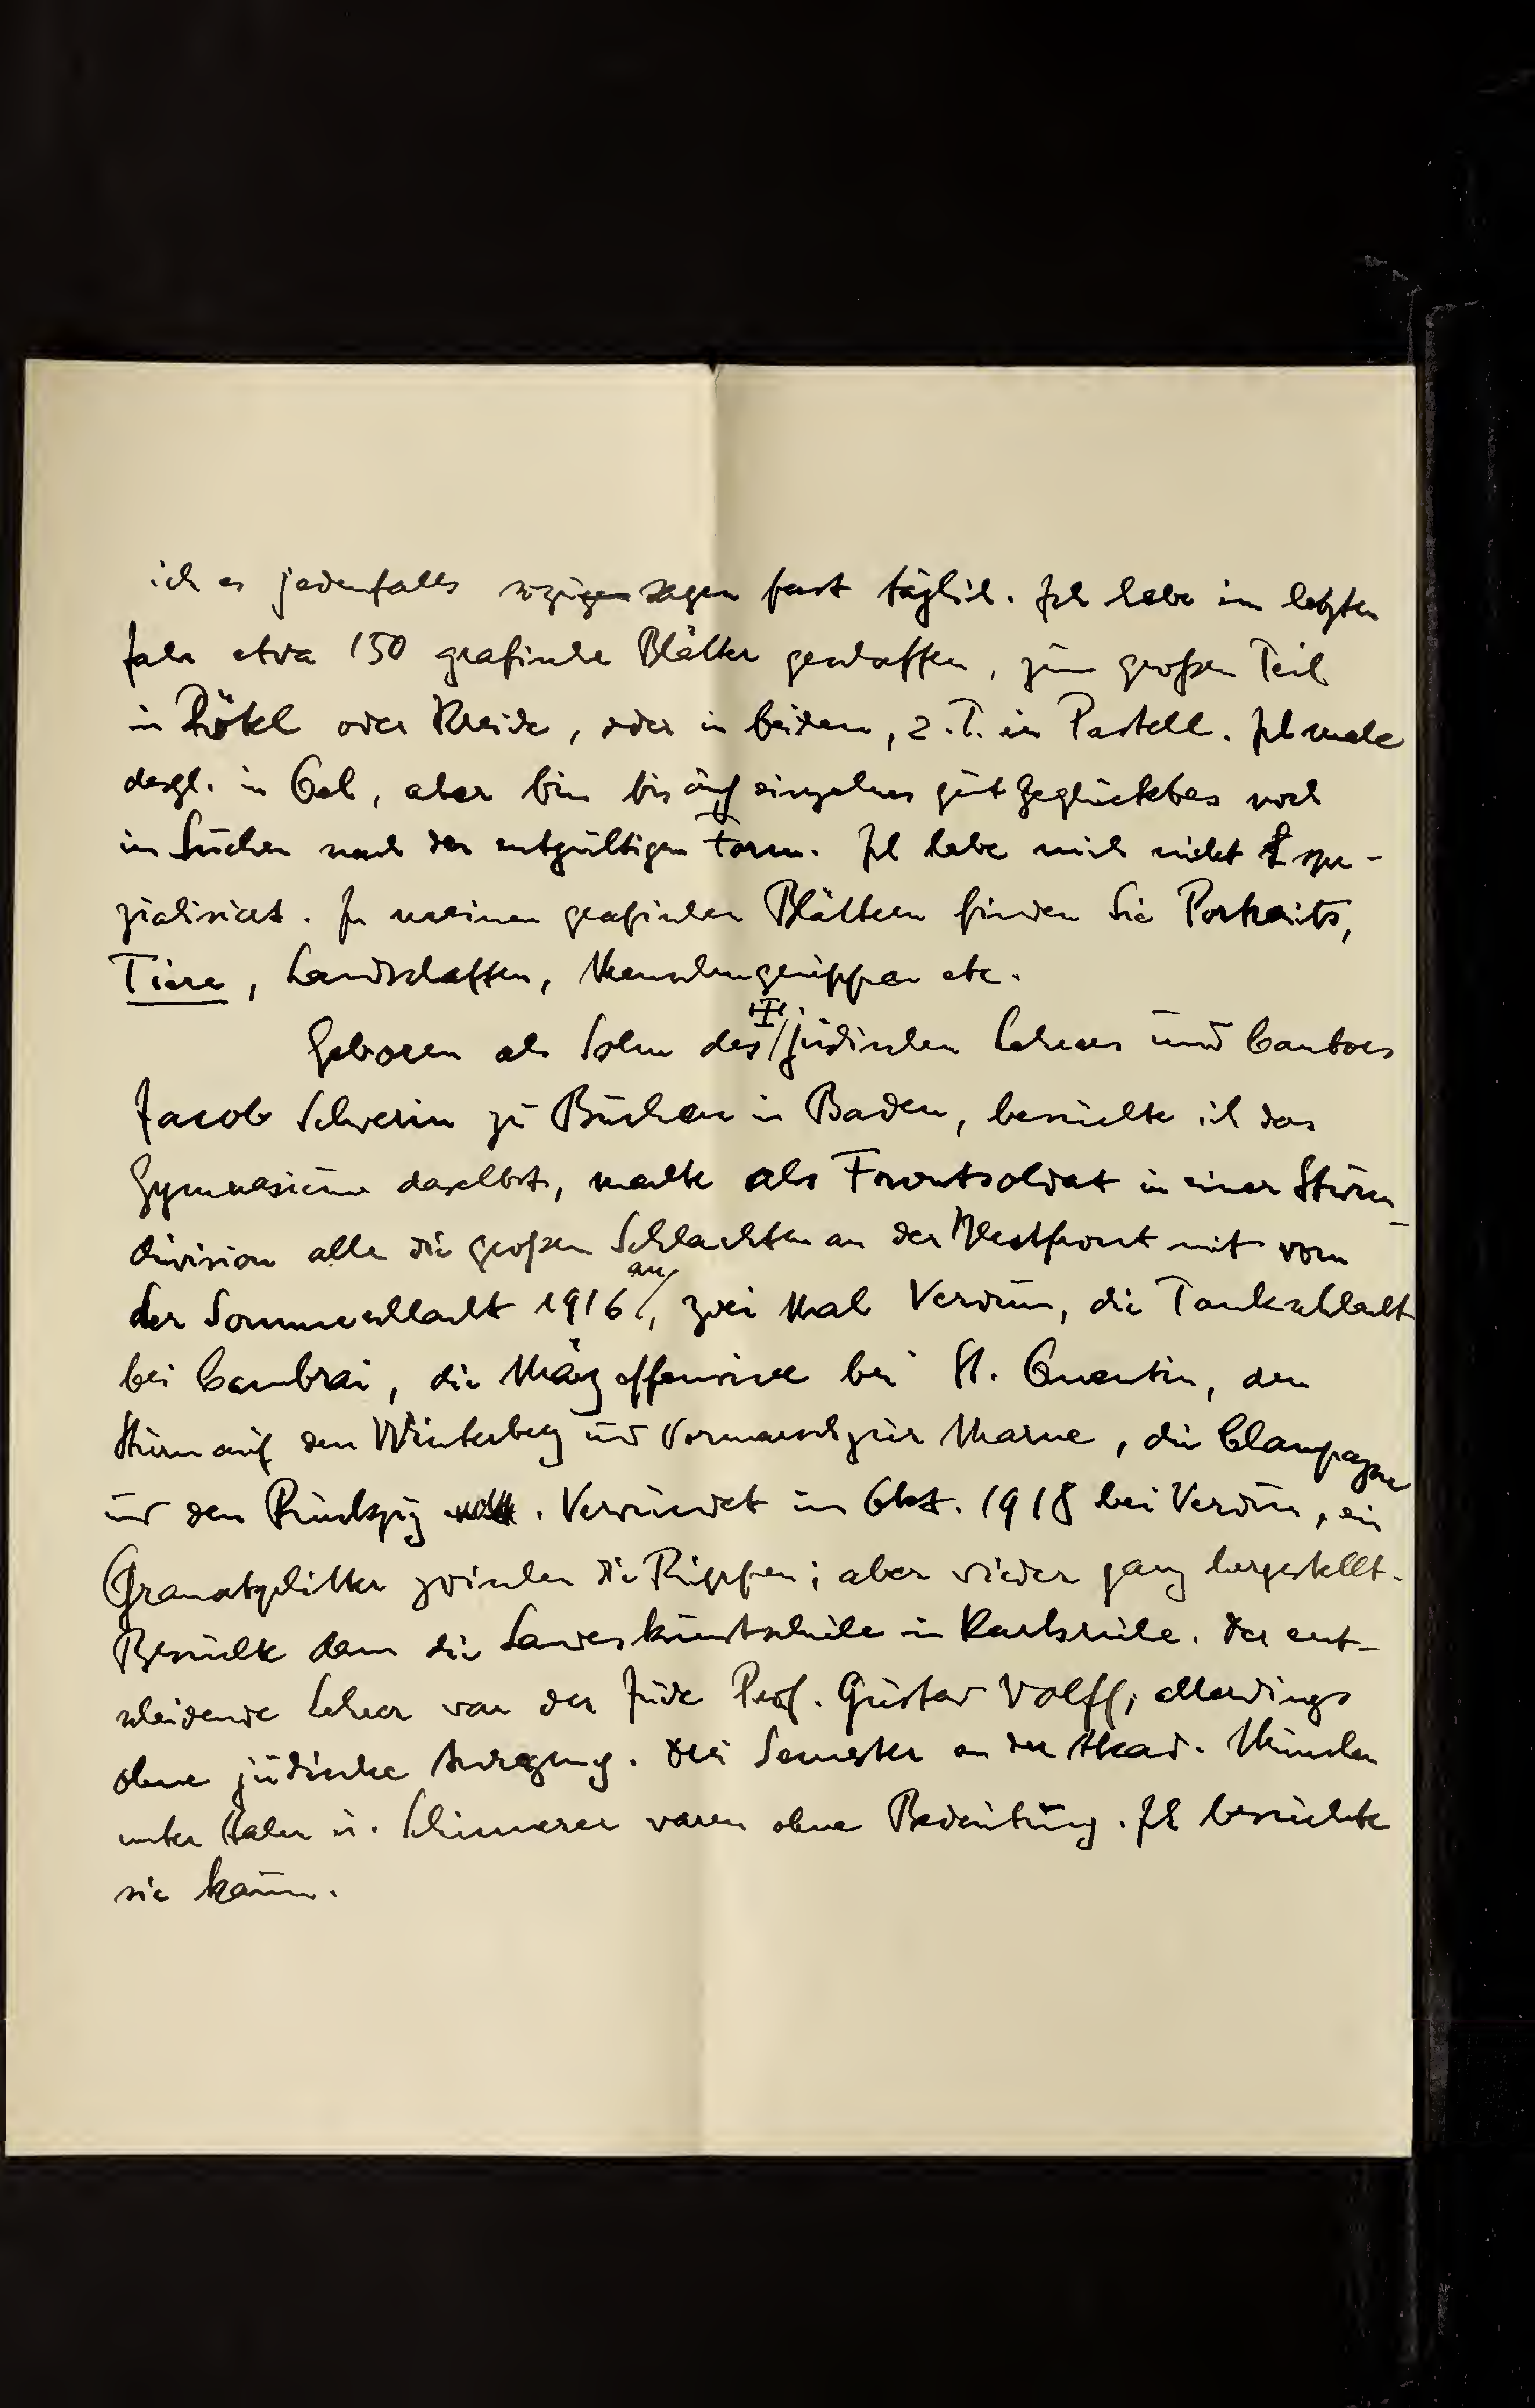 ich es jedenfalls sozusagen fast täglich. Ich habe im letzten
Jahr etwa 150 grafische Blätter geschaffen, zum großen Teil
in Rötel oder Kreide, oder in beidem, z. T. in Pastell. Ich male
desgl. in Oel, aber bin bis auf einzelnes gut geglücktes noch
im Suchen nach der entgültigen Form. Ich habe mich nicht spe-
zialisiert. In meinen grafischen Blättern finden Sie Portraits,
Tiere, Landschaften, Menschengruppen etc.
Geboren als Sohn des jüdischen Lehrers und Cantors
Jacob Schwerin zu Buchen in Baden, besuchte ich das
Gymnasium daselbst, machte als Frontsoldat in einer Sturm-
division alle die großen Schlachten an der Westfront mit von
der Sommeschlacht 1916 an, zwei Mal Verdun, die Tankschlacht
bei Cambrai, die Märzoffensive bei St. Quentin, den
Sturm auf den Winterberg und Vormarsch zur Marne, die Champagne
und den Rückzug. Verwundet im Okt. 1918 bei Verdun, ein
Granatsplitter zwischen die Rippen; aber wieder ganz hergestellt.
Besuchte dann die Landeskunstschule in Karlsruhe. Der ent-
scheidende Lehrer war der Jude Prof. Gustav Wolff, allerdings
ohne jüdische Anregung. Drei Semester an der Akad. München
unter Hahn u. Schinnerer waren ohne Bedeutung. Ich besuchte
sie kaum.